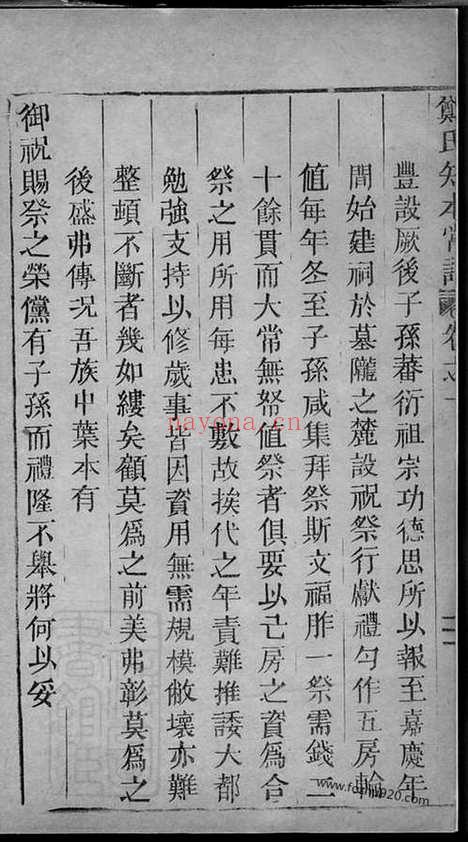 鄭氏知本堂
豐設厥後子孫蕃衍祖宗功德思所以報至嘉慶年
間始建祠於墓隴之麓設祝祭行獻禮勻作五房輪
值每年冬至子孫咸集拜祭斯文福胙一祭需錢二
十餘貫而大常無帑值祭者俱要以己房之資為合
祭之用所用每患不敷故挨代之年責難推諉大都
勉強支持以修歲事皆因資用無需規模敝壞亦難
整頓不斷者幾如縷矣顧莫為之前美弗彰莫為之
後盛弗傳況吾族中葉本有
御祝賜祭之榮儻有子孫而禮隆不舉將何以妥
nayona.cn